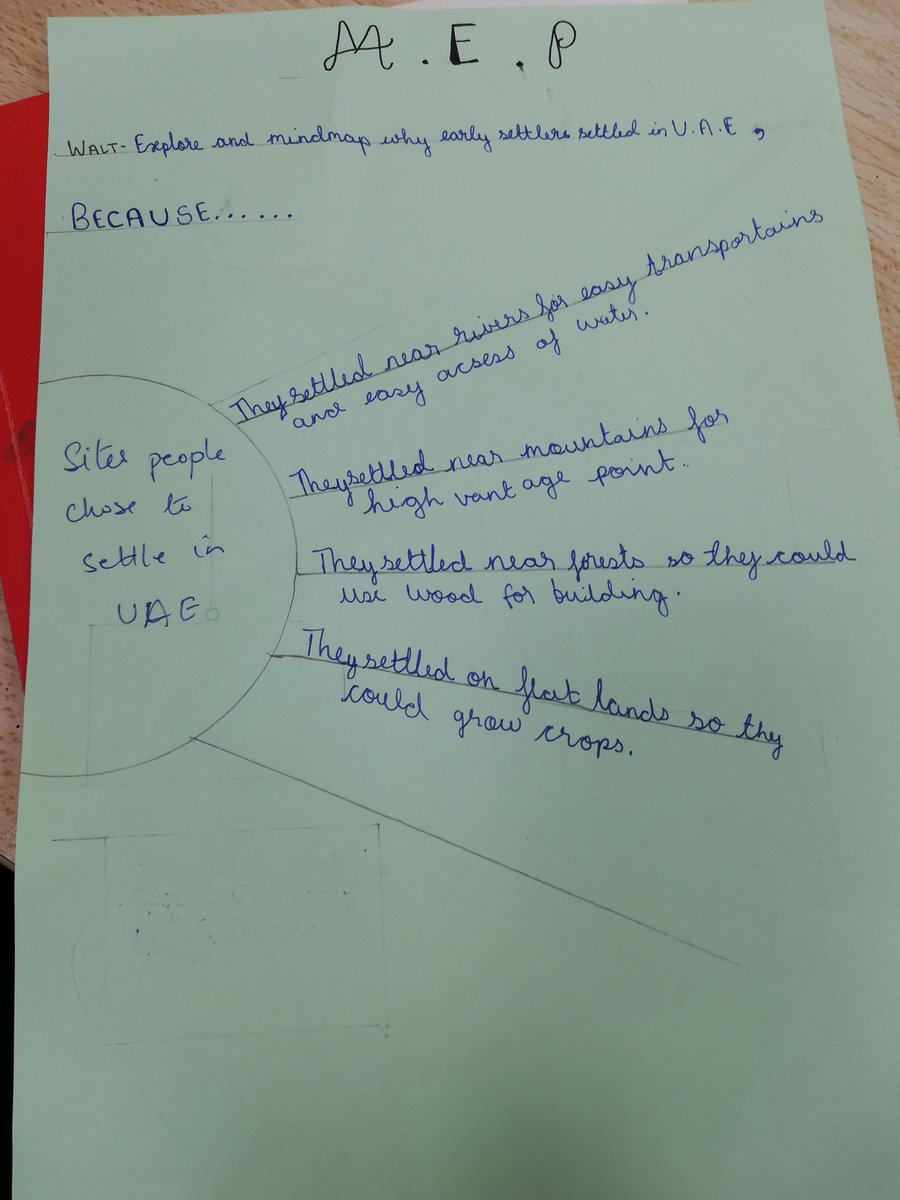 M . E . P
WALT- Explore and mindmap why early settlers settled in U.A.E ,
BECAUSE......
They settled near rivers for easy transportains
and easy acsess of water.
They settled near mountains for
high vant age point..
They settled near forests so they could
use wood for building.
They settled on flat lands so they
could grow crops.
Sites people
chose to
settle in
UAE.